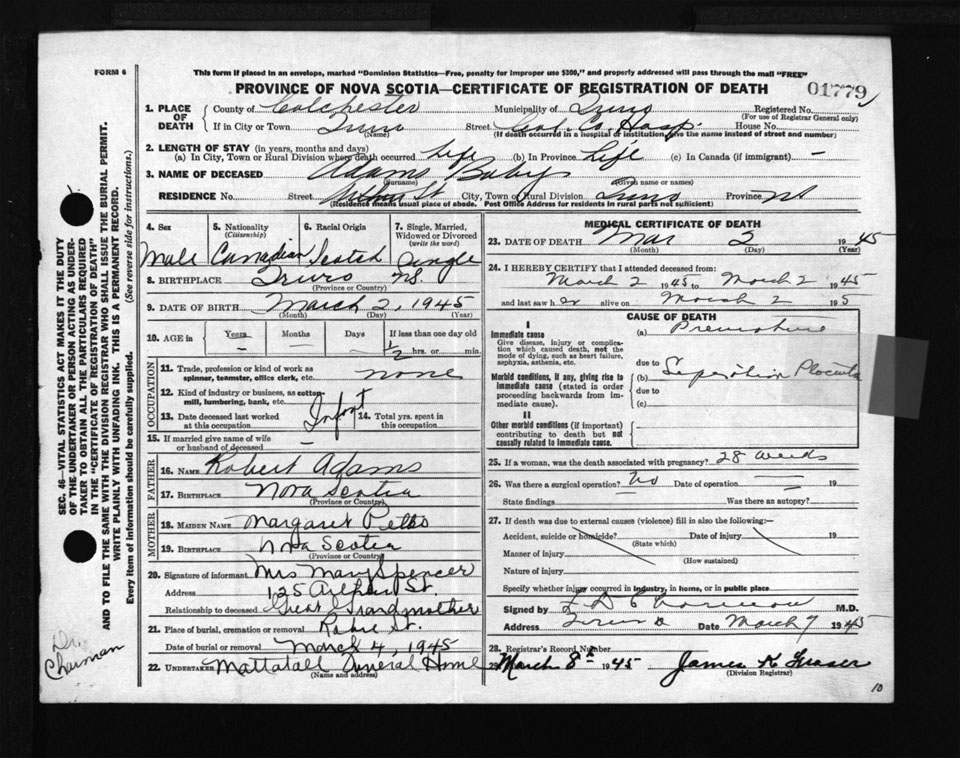 FORM 6
This form if placed in an envelope, marked "Dominion Statistics—Free, penalty for improper use $300," and properly addressed will pass through the mail "FREE"
PROVINCE OF NOVA SCOTIA—CERTIFICATE OF REGISTRATION OF DEATH
01779
1. PLACE OF DEATH
County of Colchester Municipality of Truro Registered No.
(For use of Registrar General only)
If in City or Town Truro Street Col. Co. Hosp. House No.
(Name) (If death occurred in a hospital or institution, give the name instead of street and number)
2. LENGTH OF STAY (in years, months and days)
(a) In City, Town or Rural Division where death occurred Life (b) In Province Life (c) In Canada (if immigrant) —
3. NAME OF DECEASED Adams Baby
(Surname) (Given name or names)
RESIDENCE No. Street St. City, Town or Rural Division Truro Province NS
(Residence means usual place of abode. Post Office Address for residents in rural parts not sufficient)
4. Sex
Male
5. Nationality (Citizenship)
Canadian
6. Racial Origin
Scotch
7. Single, Married, Widowed or Divorced (write the word)
Single
8. BIRTHPLACE Truro NS.
(Province or Country)
9. DATE OF BIRTH March 2, 1945
(Month) (Day) (Year)
10. AGE in Years Months Days If less than one day old
1/2 hrs. or min.
OCCUPATION
11. Trade, profession or kind of work as spinner, teamster, office clerk, etc. none
12. Kind of industry or business, as cotton-mill, lumbering, bank, etc. Infant
13. Date deceased last worked at this occupation
14. Total yrs. spent in this occupation
15. If married give name of wife or husband of deceased —
FATHER
16. NAME Robert Adams
17. BIRTHPLACE Nova Scotia
(Province or Country)
MOTHER
18. MAIDEN NAME Margaret
19. BIRTHPLACE Nova Scotia
(Province or Country)
20. Signature of informant Mrs Mary Spencer
Address 125 Arthur St.
Relationship to deceased Great Grandmother
21. Place of burial, cremation or removal Robie St.
Date of burial or removal March 4, 1945
22. UNDERTAKER Mattatall Funeral Home
(Name and address)
MEDICAL CERTIFICATE OF DEATH
23. DATE OF DEATH Mar 2 1945
(Month) (Day) (Year)
24. I HEREBY CERTIFY that I attended deceased from:
March 2 1945 to March 2 1945
and last saw h er alive on March 2 1945
CAUSE OF DEATH
I
Immediate cause
Give disease, injury or complication which caused death, not the mode of dying, such as heart failure, asphyxia, asthenia, etc.
(a) Premature
due to
Morbid conditions, if any, giving rise to immediate cause (stated in order proceeding backwards from immediate cause).
(b) Separation Placenta
due to
(c)
II
Other morbid conditions (if important) contributing to death but not causally related to immediate cause.
25. If a woman, was the death associated with pregnancy? 28 weeks
26. Was there a surgical operation? No Date of operation 19
State findings Was there an autopsy?
27. If death was due to external causes (violence) fill in also the following:—
Accident, suicide or homicide? Date of injury 19
(State which)
Manner of injury
(How sustained)
Nature of injury
Specify whether injury occurred in industry, in home, or in public place
Signed by M.D.
Address Truro Date March 7 1945
28. Registrar's Record Number
29. March 8th 1945 James K Fraser
(Division Registrar)
10
SEC. 46—VITAL STATISTICS ACT MAKES IT THE DUTY
OF THE UNDERTAKER OR PERSON ACTING AS UNDERTAKER TO OBTAIN ALL THE PARTICULARS REQUIRED
IN THE "CERTIFICATE OF REGISTRATION OF DEATH"
AND TO FILE THE SAME WITH THE DIVISION REGISTRAR WHO SHALL ISSUE THE BURIAL PERMIT.
WRITE PLAINLY WITH UNFADING INK. THIS IS A PERMANENT RECORD.
Every item of information should be carefully supplied. (See reverse side for instructions.)
Dr.